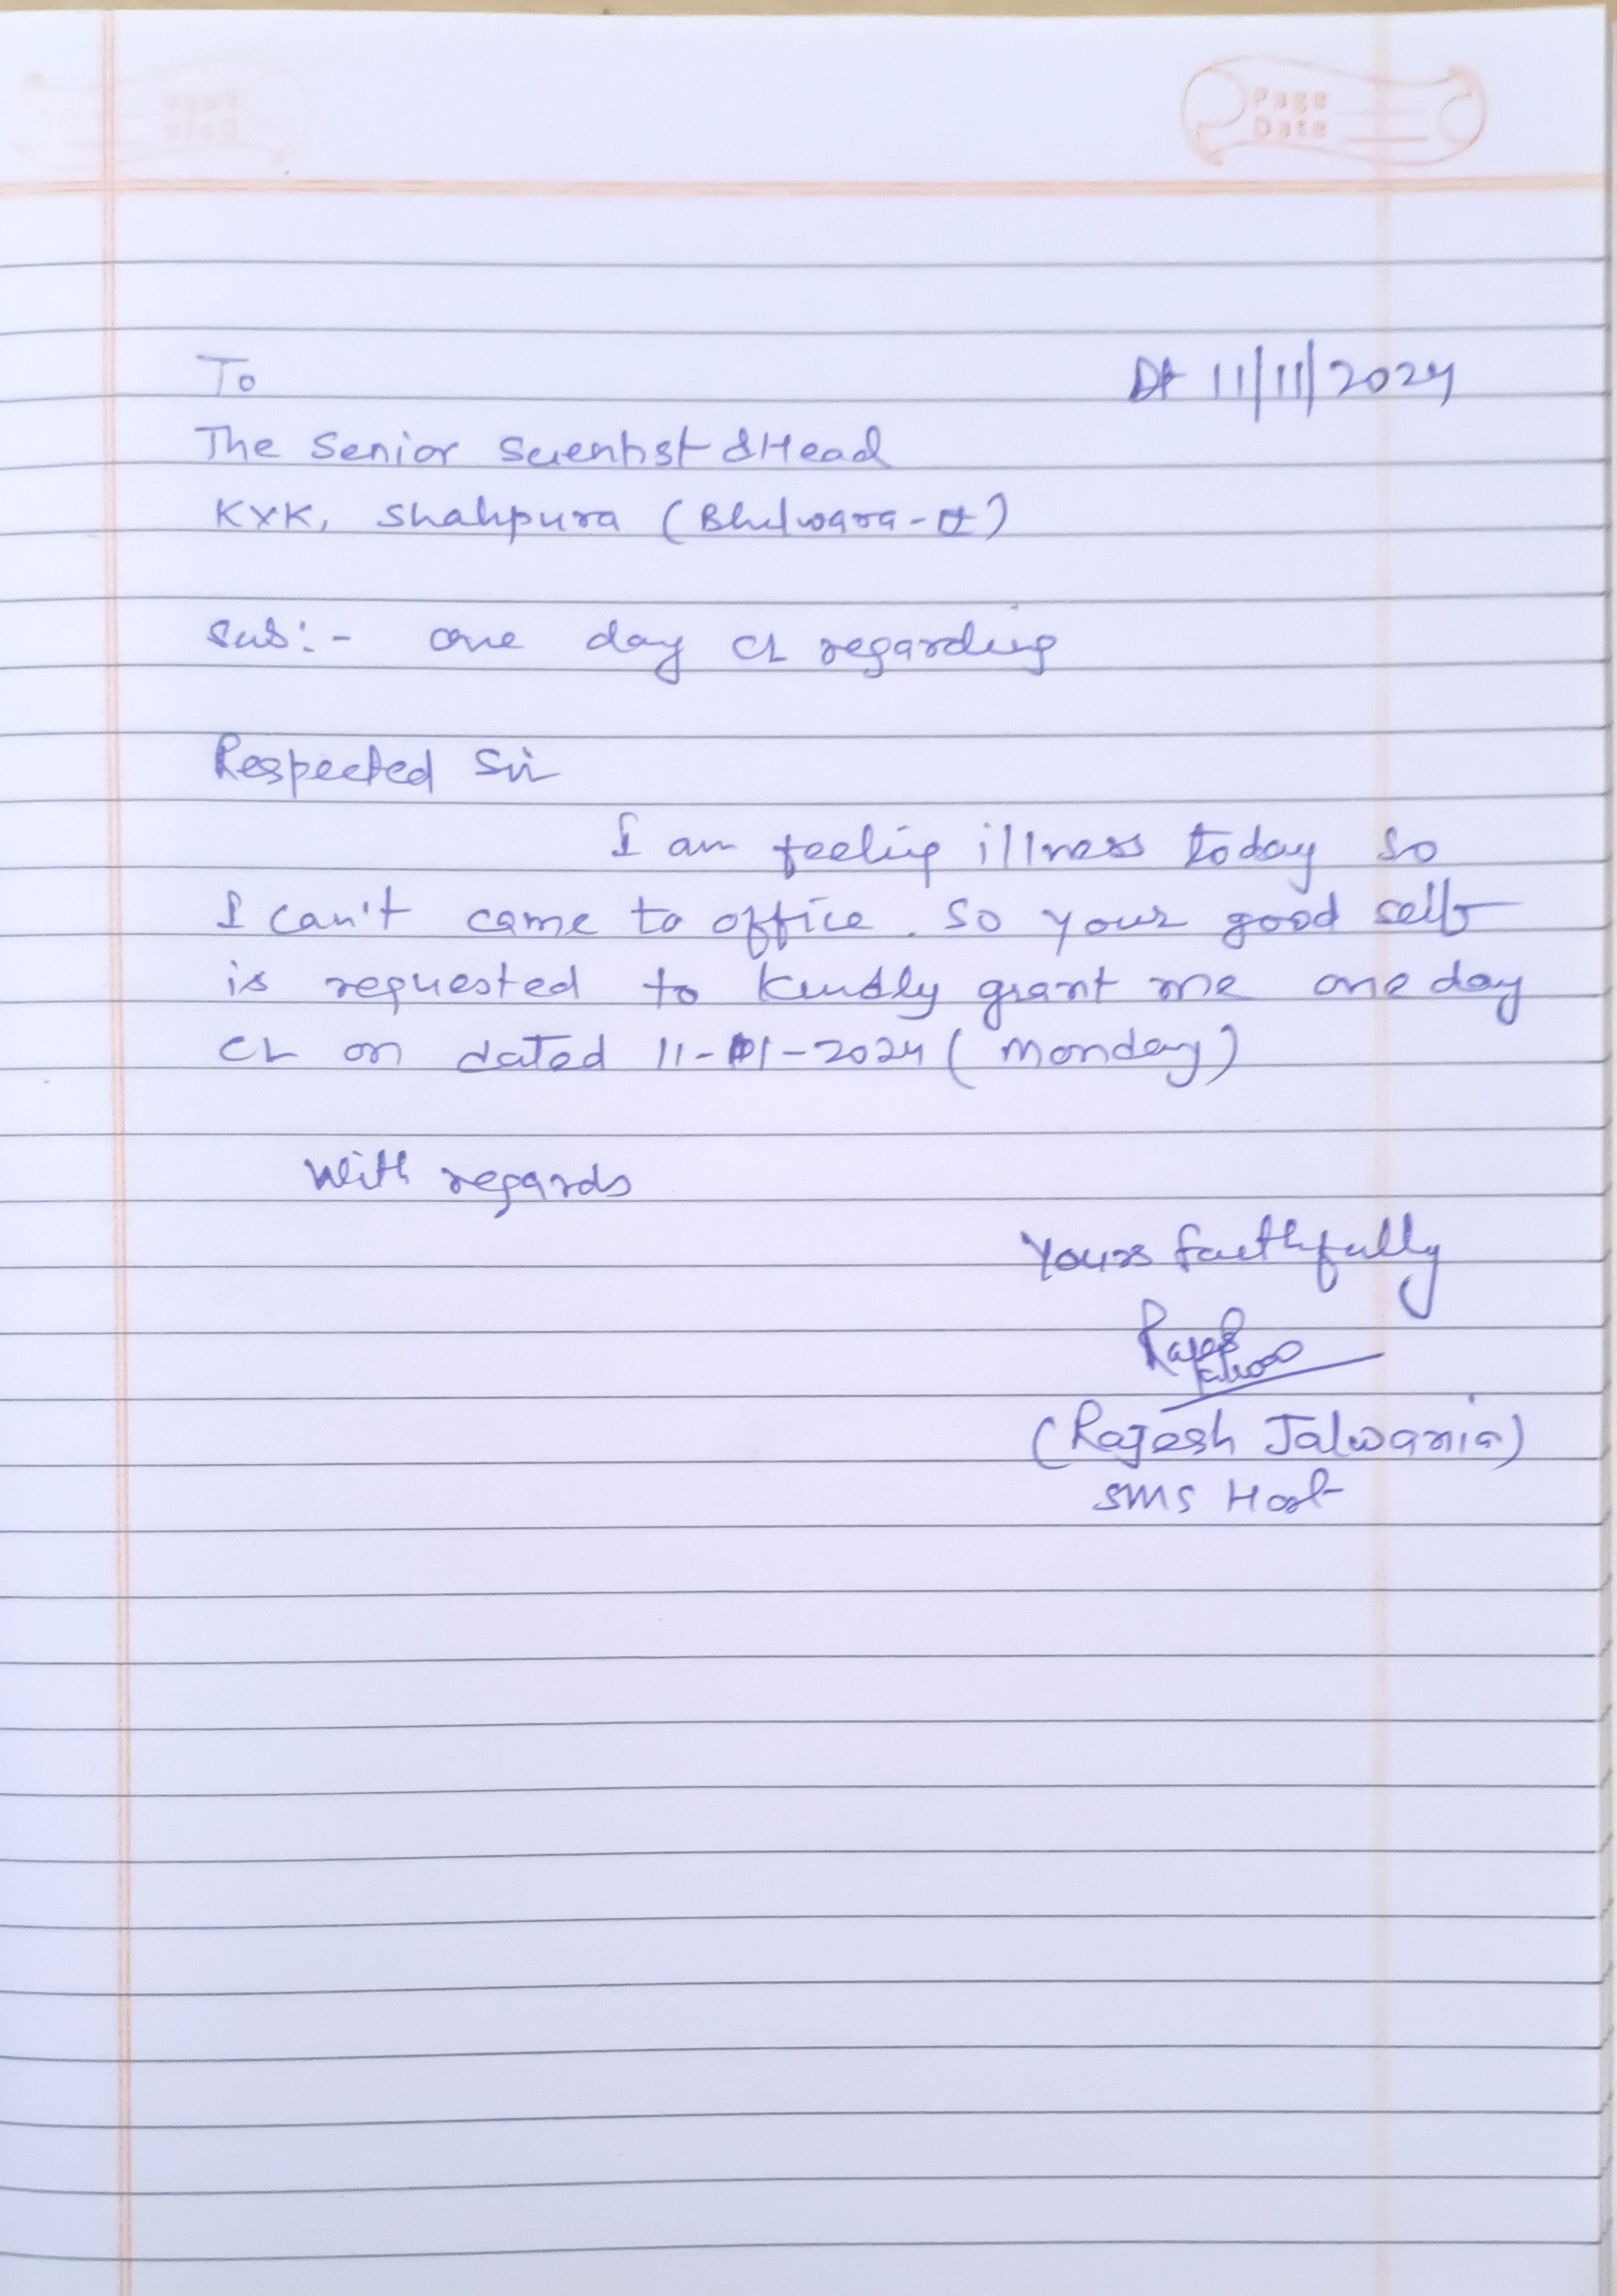 Page
Date
To
Dt 11/11/2024
The Senior Scientist & Head
KVK, Shahpura (Bhilwara-II)
Sub:- one day CL regarding
Respected Sir
I am feeling illness today so
I can't came to office. So your good self
is requested to kindly grant me one day
CL on dated 11-11-2024 (Monday)
With regards
Yours faithfully
Rajesh
(Rajesh Jalwania)
SMS Hort